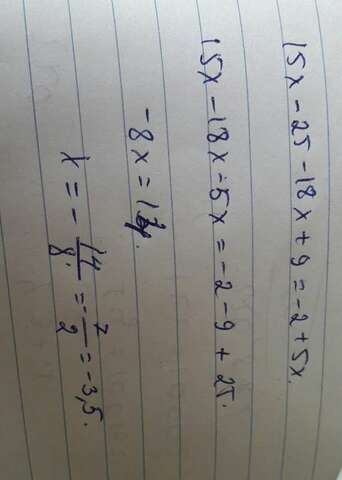 15x - 25 - 18x + 9 = -2 + 5x.
15x - 18x - 5x = -2 - 9 + 25.
-8x = 14.
x = - 14/8 = - 7/2 = -3,5.